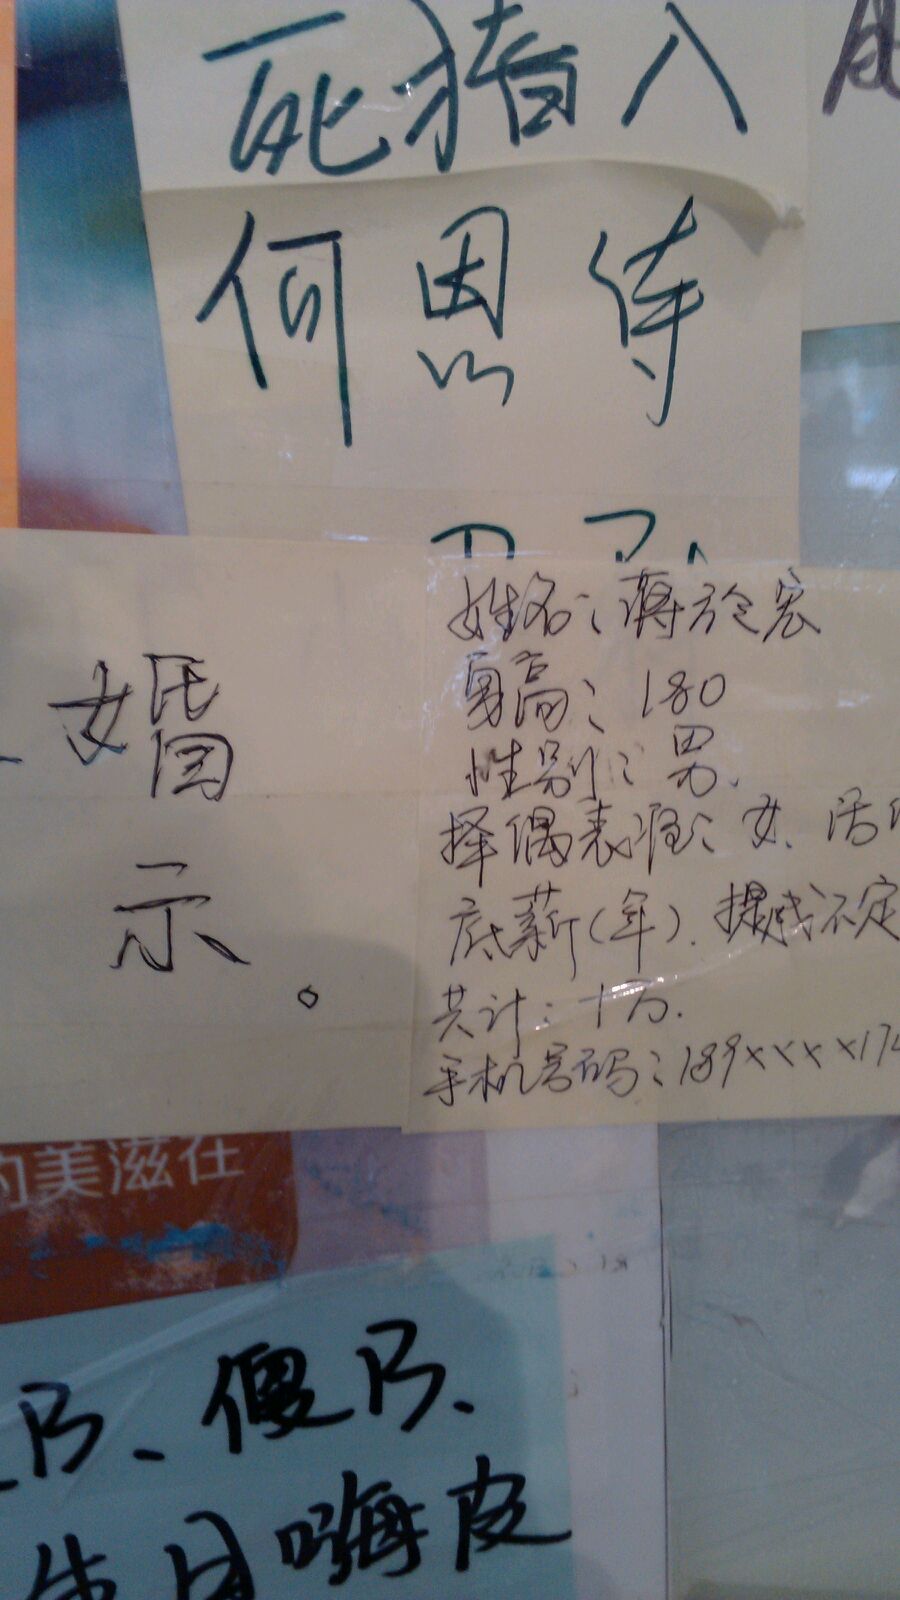 死猪入
何恩待
婚
示。
姓名：蒋於宏
身高：180
性别：男.
择偶表准：女、活
底薪(年).提成不定
共计：十万.
手机号码：189××××17
的美滋在
B、傻B、
生日嗨皮